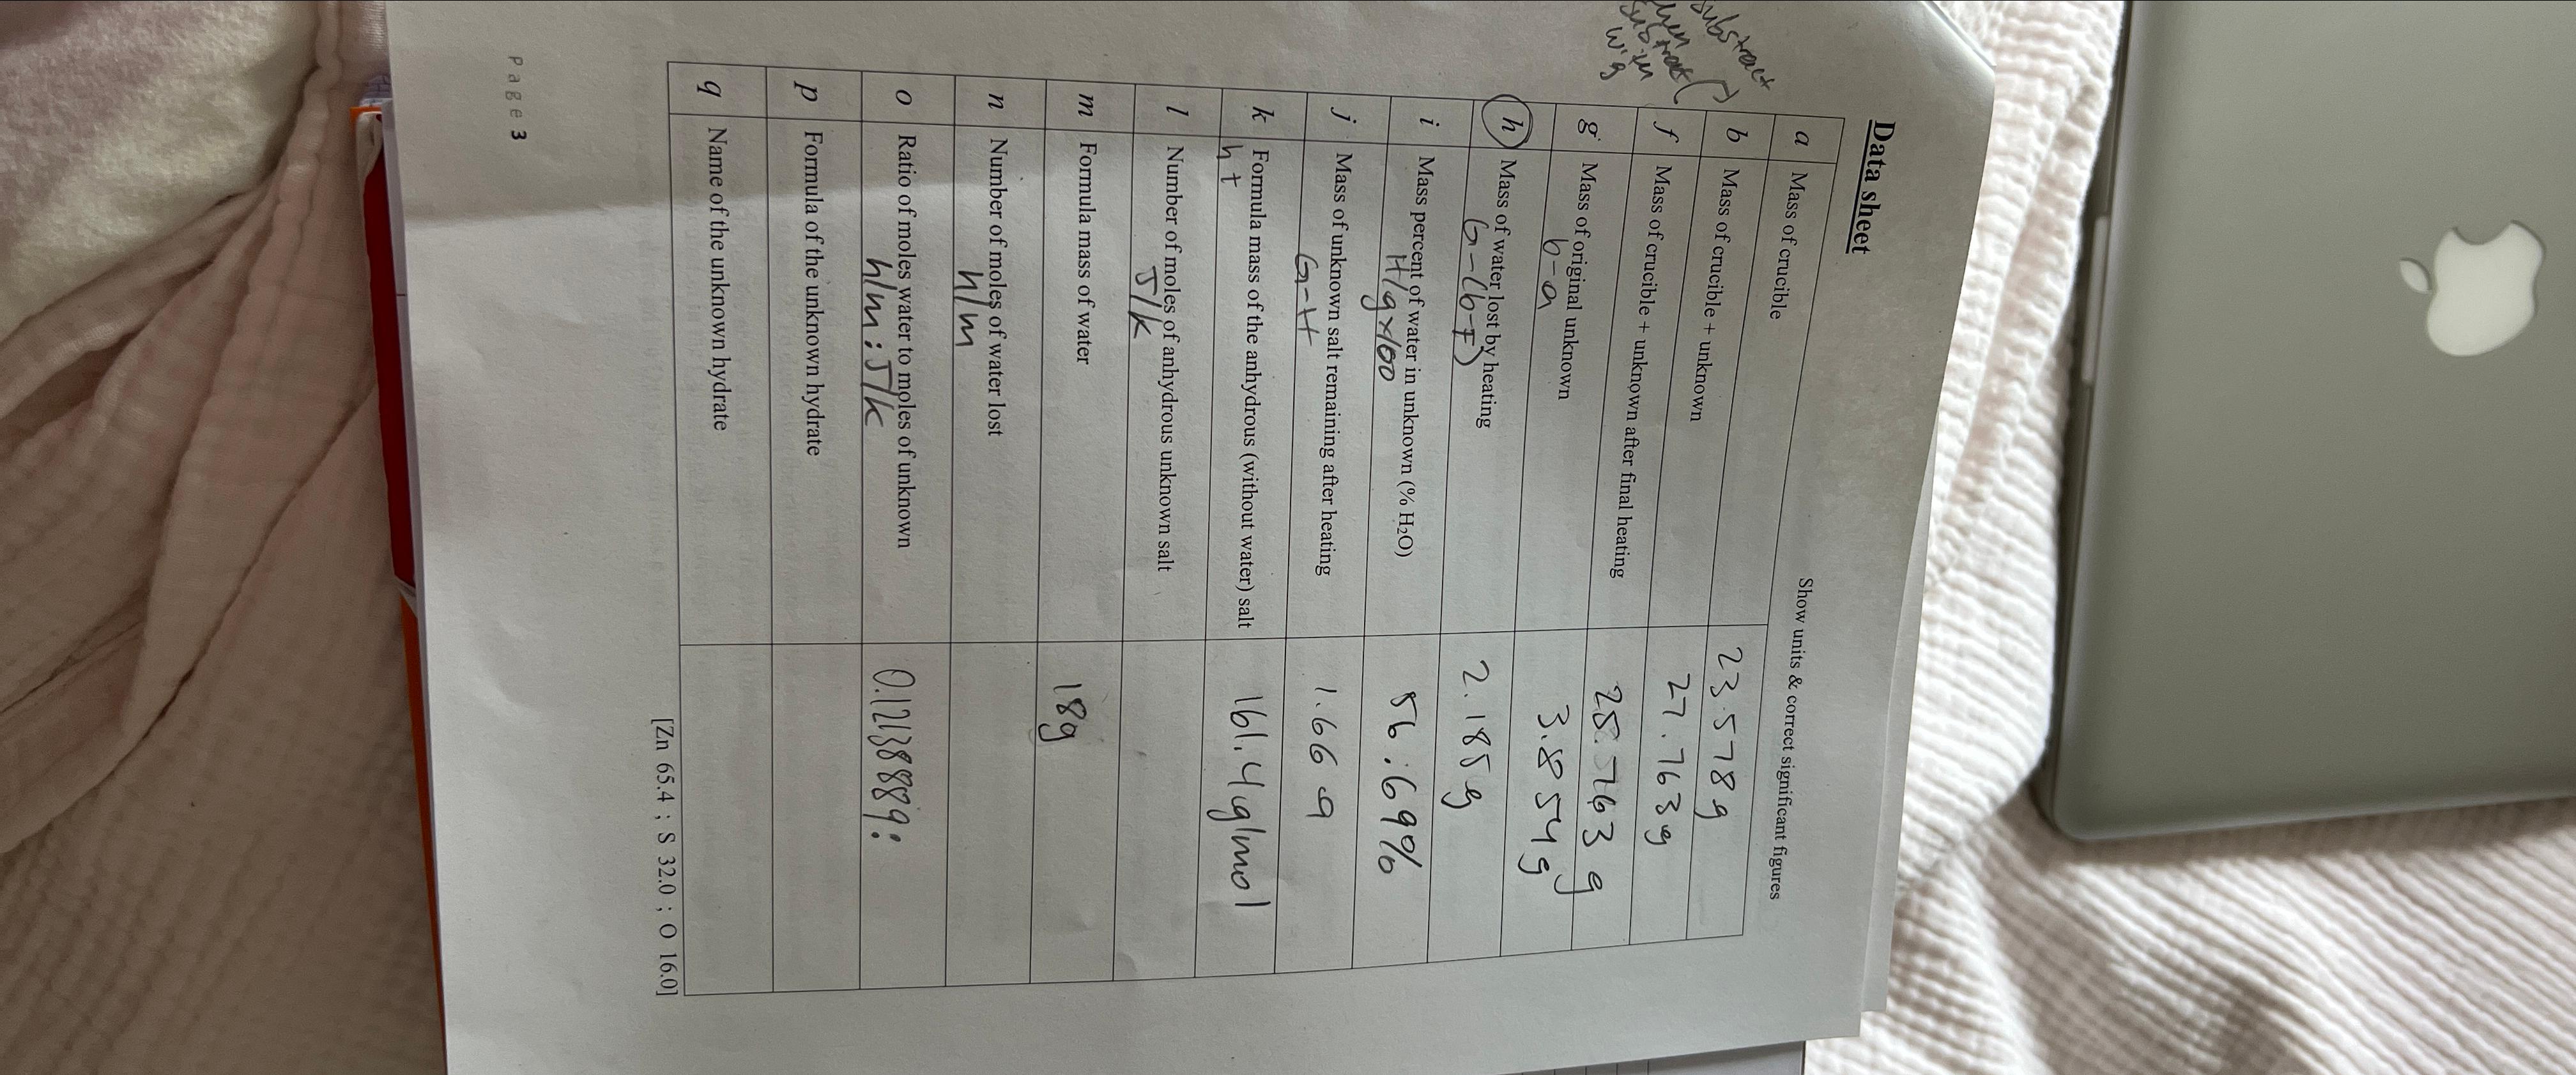 substract
when
substract (-)
sub-in
w·g
Data sheet
Show units & correct significant figures
a Mass of crucible 23.578g
b Mass of crucible + unknown 27.763g
f Mass of crucible + unknown after final heating 25.763 g
g Mass of original unknown 3.854g
b-a
h Mass of water lost by heating 2.185g
G-(b-F)
i Mass percent of water in unknown (% H₂O) 56.69%
H/g×100
j Mass of unknown salt remaining after heating 1.669
G-H
k Formula mass of the anhydrous (without water) salt 161.4g/mol
h+
l Number of moles of anhydrous unknown salt
J/k
m Formula mass of water 18g
n Number of moles of water lost
h/m
o Ratio of moles water to moles of unknown 0.12138889:
h/m:J/k
p Formula of the unknown hydrate
q Name of the unknown hydrate
[Zn 65.4 ; S 32.0 ; O 16.0]
Page 3